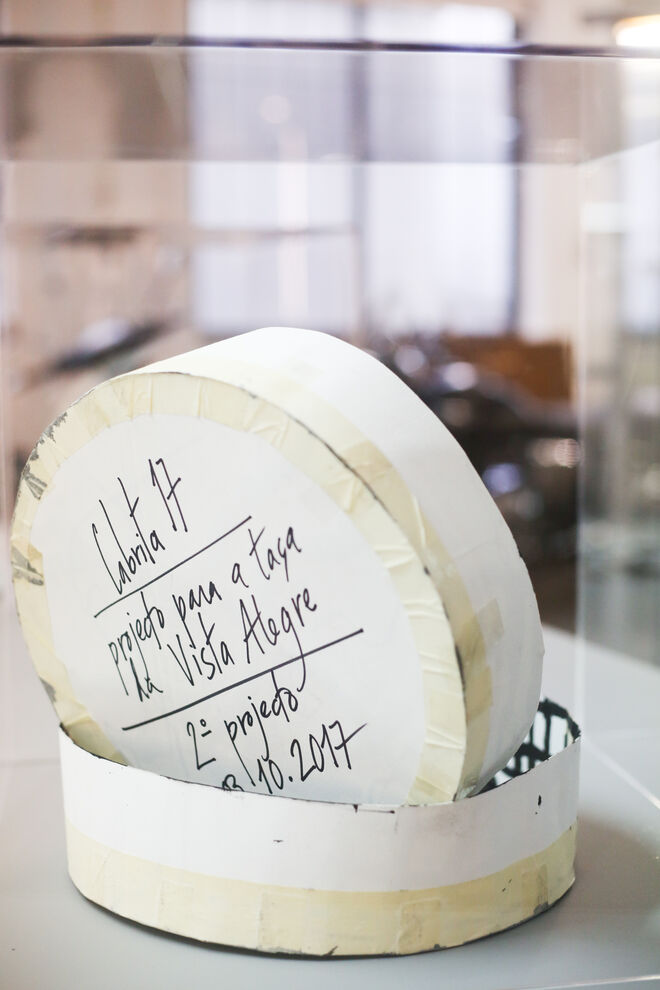 Cabrita 17
projecto para a taça
da Vista Alegre
2º projecto
.10.2017